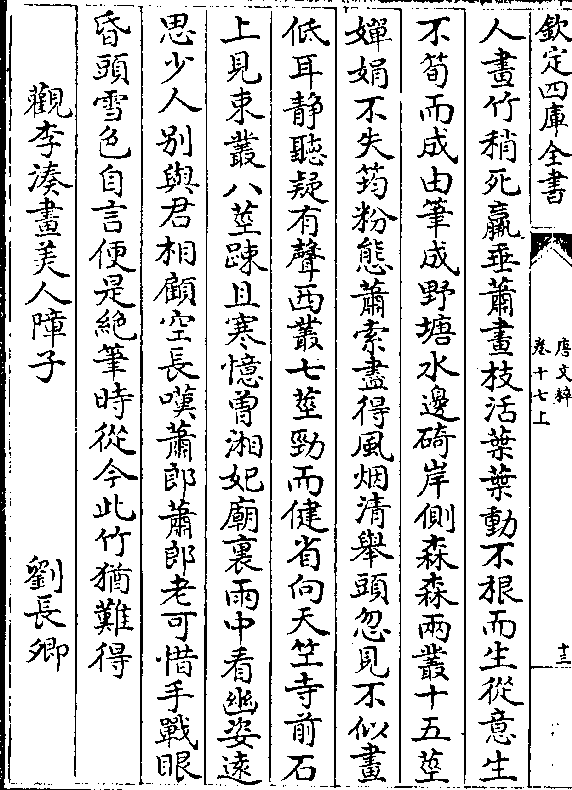 欽定四庫全書
唐文粹
卷十七上
十三
人畫竹稍死羸垂蕭畫枝活葉葉動不根而生從意生
不筍而成由筆成野塘水邊碕岸側森森兩叢十五莖
嬋娟不失筠粉態蕭索盡得風烟清舉頭忽見不似畫
低耳静聽疑有聲西叢七莖勁而健省向天竺寺前石
上見東叢八莖踈且寒憶曽湘妃廟裏雨中看幽姿逺
思少人别與君相顧空長嘆蕭郎蕭郎老可惜手戰眼
昏頭雪色自言便是絶筆時從今此竹猶難得
觀李湊畫美人障子 劉長卿